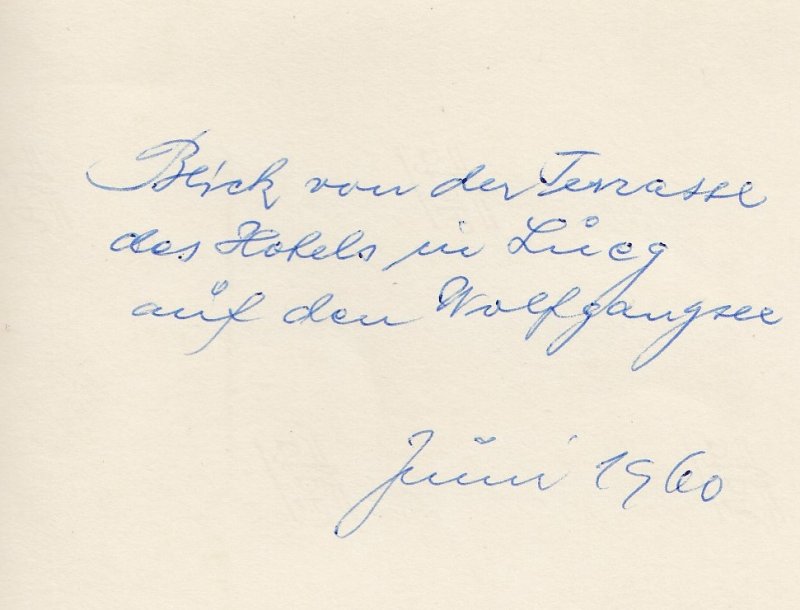 Blick von der Terrasse
des Hotels in Lueg
auf den Wolfgangsee
Juni 1960